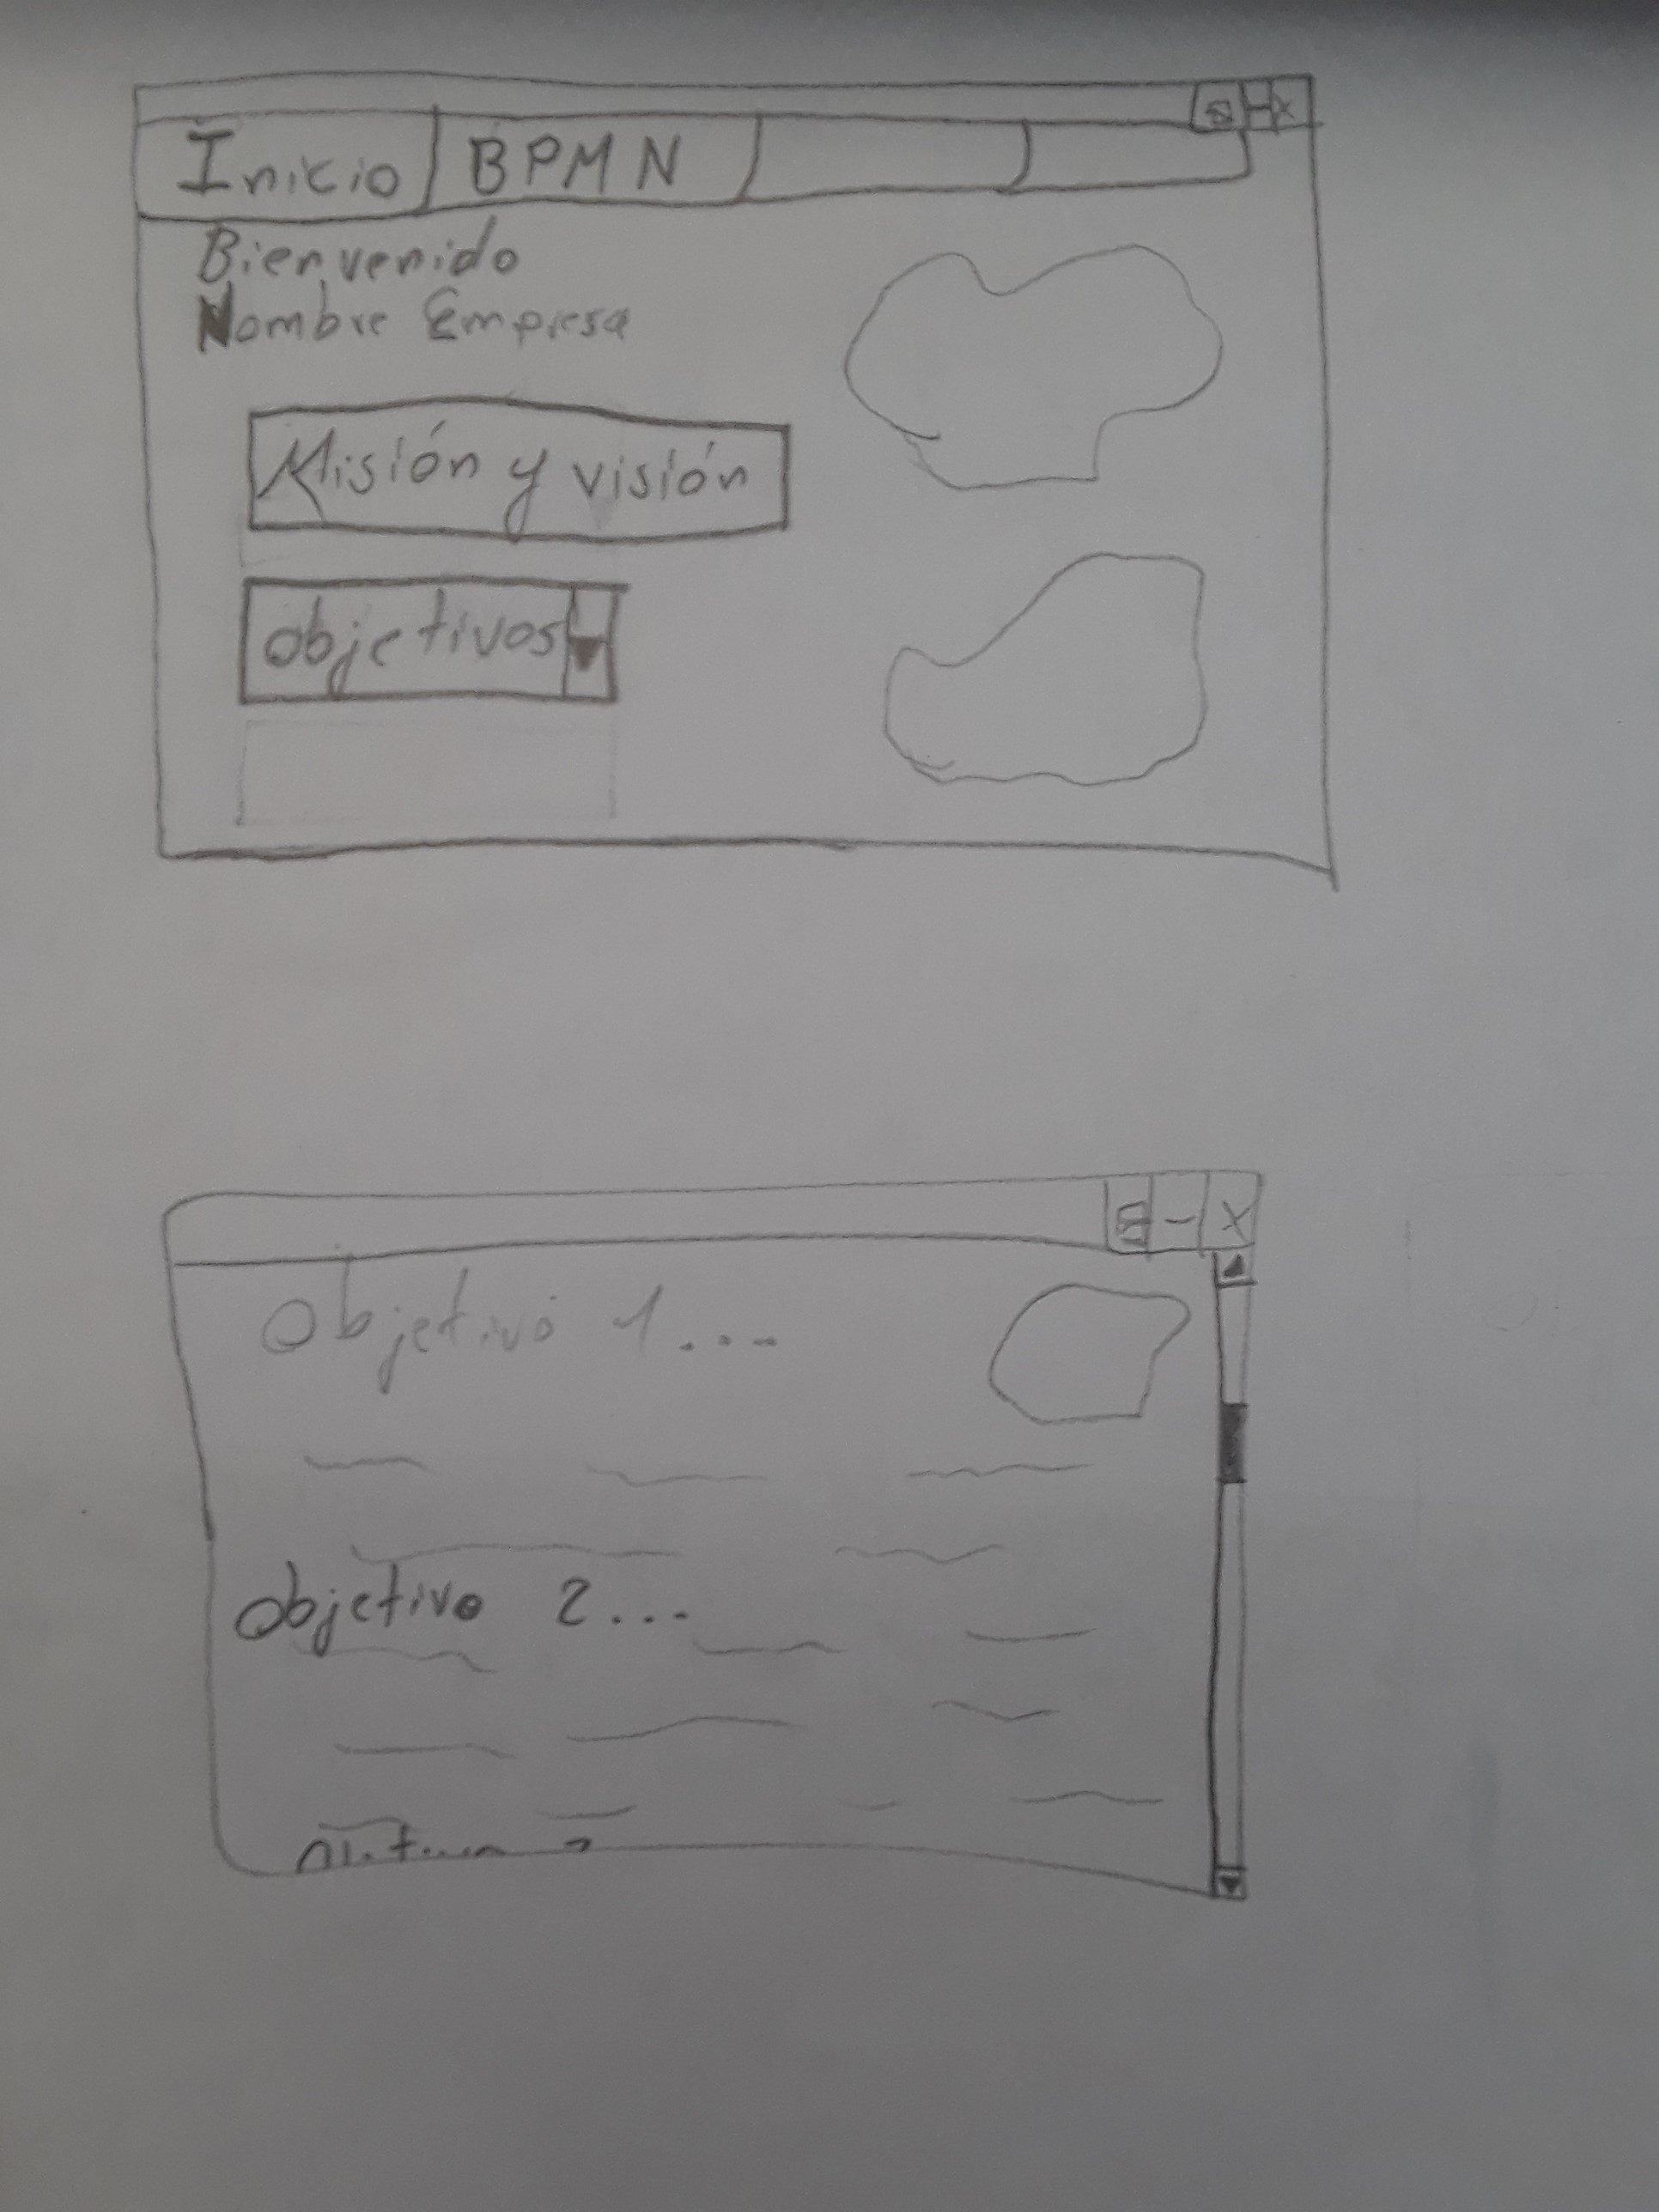 Inicio BPMN
Bienvenido
Nombre Empresa
Misión y visión
Objetivos
Objetivo 1...
Objetivo 2...